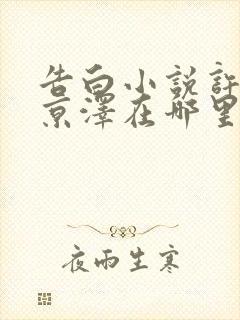 告白小説許
京澤在哪里
夜雨生寒